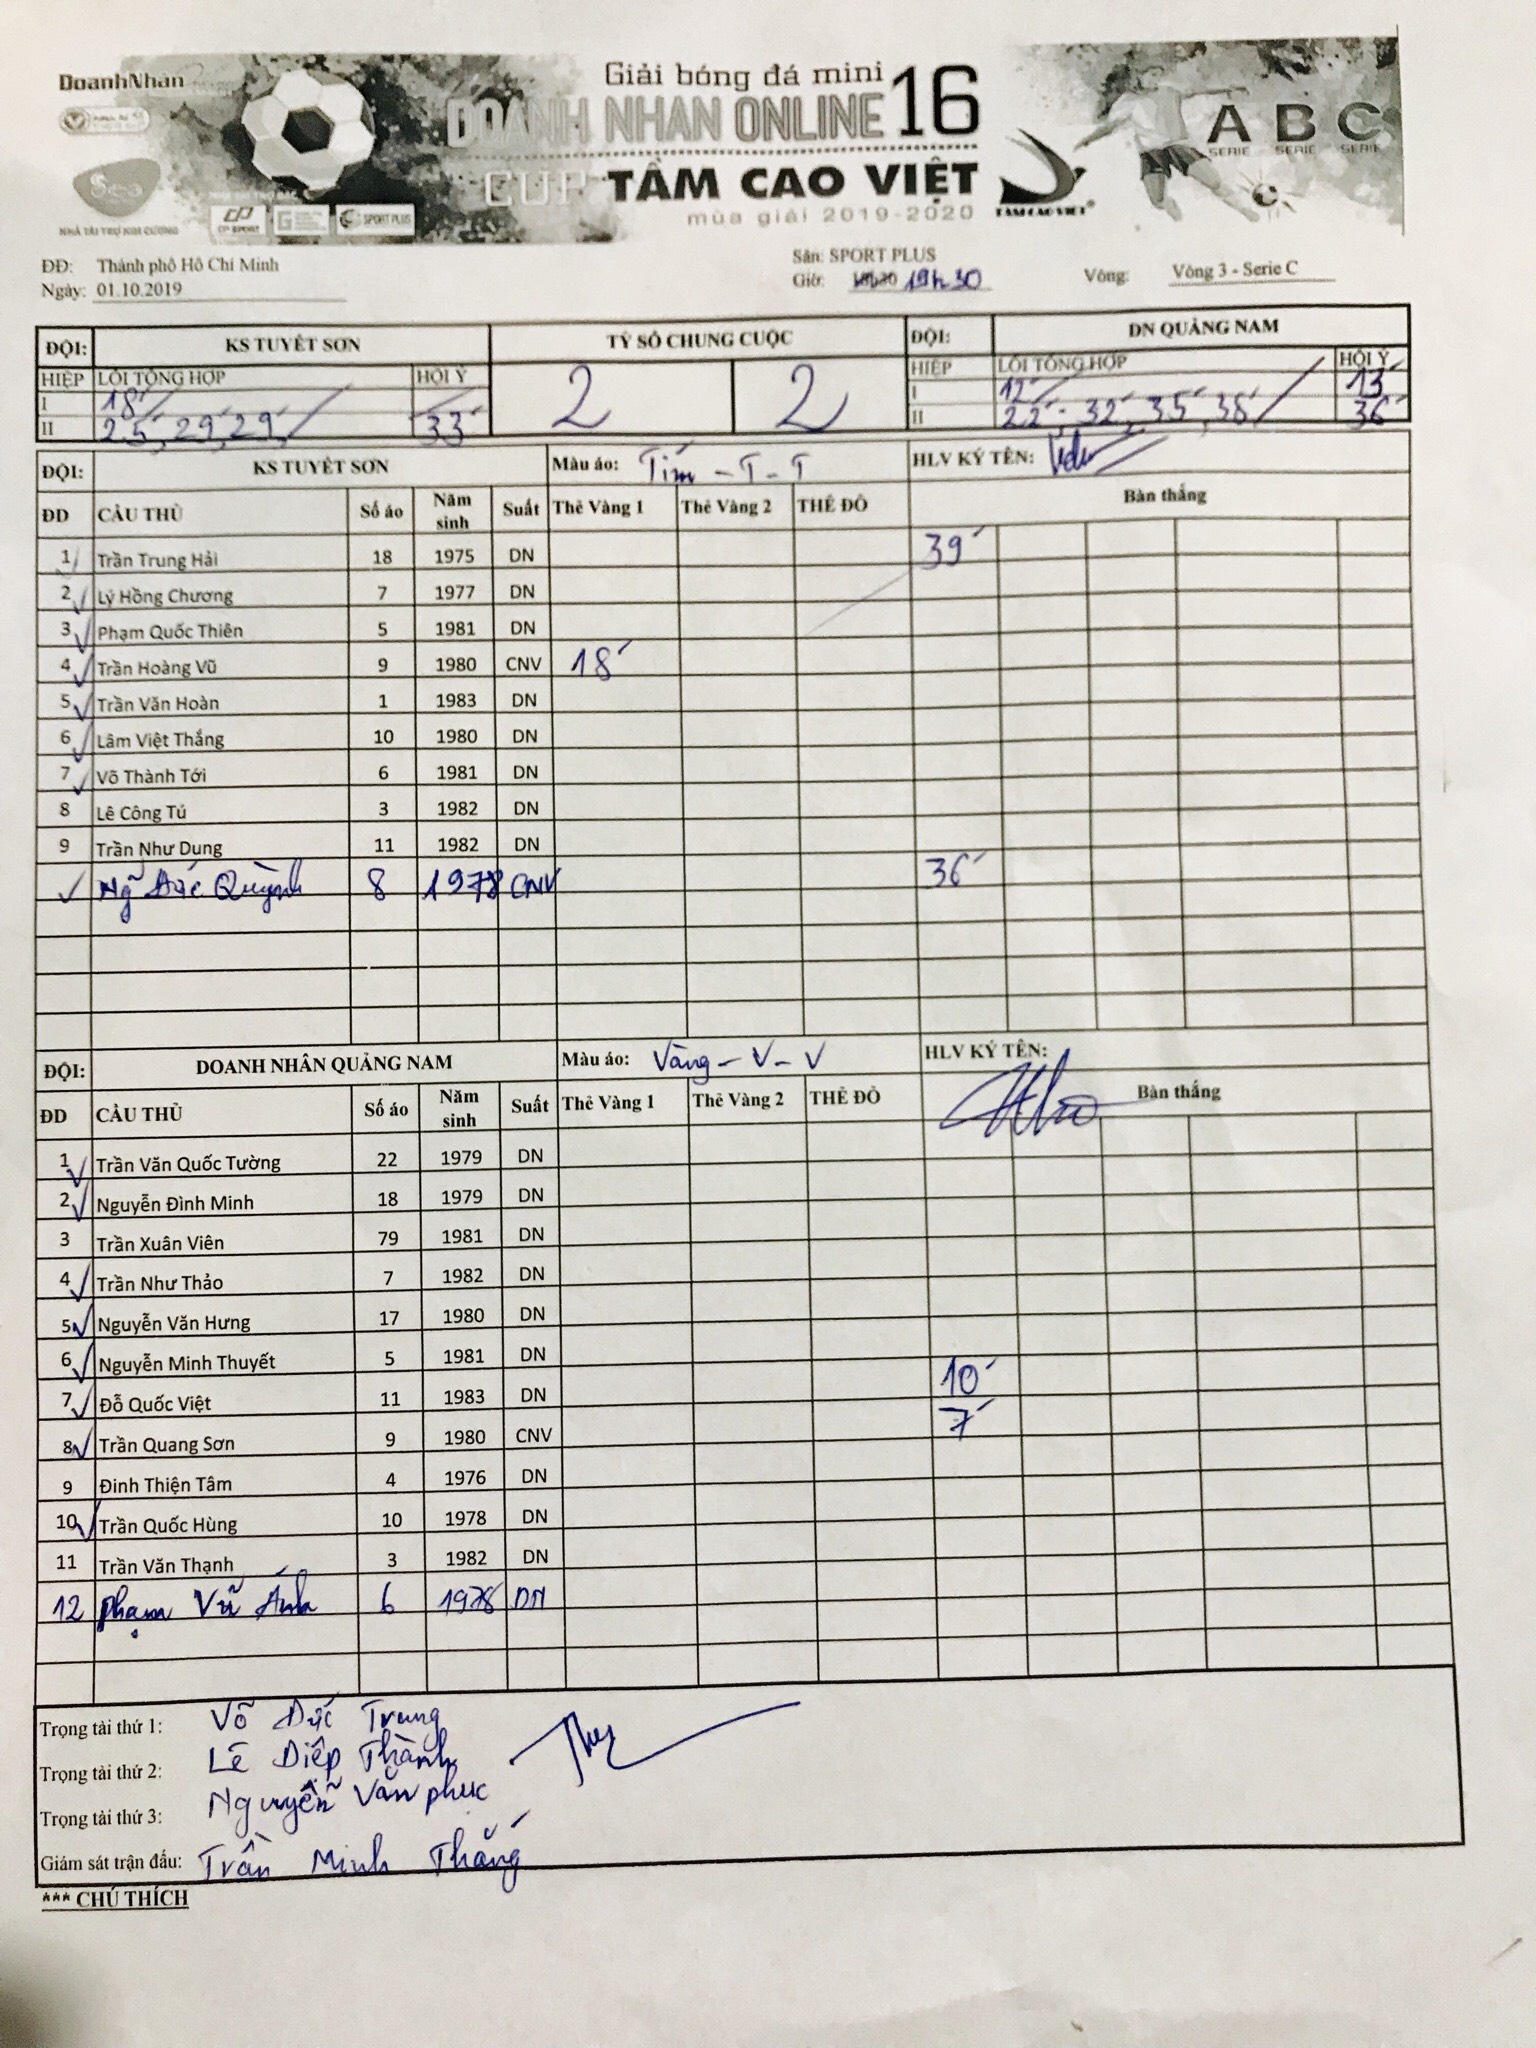 DoanhNhan
Giải bóng đá mini
DOANH NHAN ONLINE 16
CUP TẦM CAO VIỆT
mùa giải 2019-2020
Sea
NHÀ TÀI TRỢ KIM CƯƠNG
CP SPORT
SPORT PLUS
TẦM CAO VIỆT
A B C
SERIE SERIE SERIE
ĐĐ: Thành phố Hồ Chí Minh
Ngày: 01.10.2019
Sân: SPORT PLUS
Giờ: 19h30
Vòng: Vòng 3 - Serie C
ĐỘI: KS TUYẾT SƠN TỶ SỐ CHUNG CUỘC ĐỘI: DN QUẢNG NAM
HIỆP LỖI TỔNG HỢP HỘI Ý 2 2 HIỆP LỖI TỔNG HỢP HỘI Ý
I 18' I 12' 13'
II 25', 29', 29' 33' II 22', 32', 35', 38' 36'
ĐỘI: KS TUYẾT SƠN Màu áo: Tím - T - T HLV KÝ TÊN:
ĐD CẦU THỦ Số áo Năm sinh Suất Thẻ Vàng 1 Thẻ Vàng 2 THẺ ĐỎ Bàn thắng
1 Trần Trung Hải 18 1975 DN 39'
2 Lý Hồng Chương 7 1977 DN
3 Phạm Quốc Thiên 5 1981 DN
4 Trần Hoàng Vũ 9 1980 CNV 18'
5 Trần Văn Hoàn 1 1983 DN
6 Lâm Việt Thắng 10 1980 DN
7 Võ Thành Tới 6 1981 DN
8 Lê Công Tú 3 1982 DN
9 Trần Như Dung 11 1982 DN
Ng̃ Đức Quỳnh 8 1978 CNV 36'
ĐỘI: DOANH NHÂN QUẢNG NAM Màu áo: Vàng - V - V HLV KÝ TÊN:
ĐD CẦU THỦ Số áo Năm sinh Suất Thẻ Vàng 1 Thẻ Vàng 2 THẺ ĐỎ Bàn thắng
1 Trần Văn Quốc Tường 22 1979 DN
2 Nguyễn Đình Minh 18 1979 DN
3 Trần Xuân Viên 79 1981 DN
4 Trần Như Thảo 7 1982 DN
5 Nguyễn Văn Hưng 17 1980 DN
6 Nguyễn Minh Thuyết 5 1981 DN
7 Đỗ Quốc Việt 11 1983 DN 10'
8 Trần Quang Sơn 9 1980 CNV 7'
9 Đinh Thiện Tâm 4 1976 DN
10 Trần Quốc Hùng 10 1978 DN
11 Trần Văn Thạnh 3 1982 DN
12 Phạm Vũ Ánh 6 1978 DN
Trọng tài thứ 1: Võ Đức Trung
Trọng tài thứ 2: Lê Diệp Thành
Trọng tài thứ 3: Nguyễn Văn phục
Giám sát trận đấu: Trần Minh Thắng
*** CHÚ THÍCH